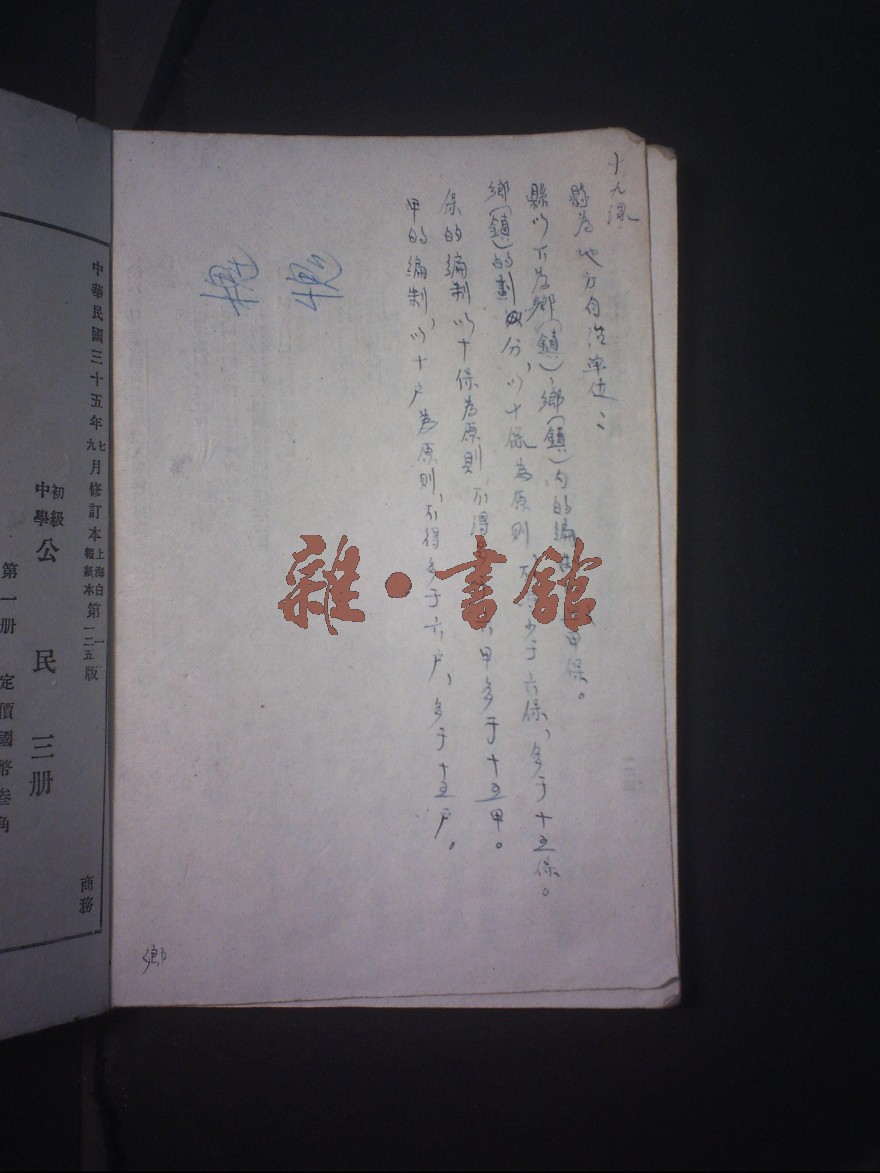 十九課
縣為地方自治單位：
縣以下為鄉(鎮)、鄉(鎮)內的編 甲保。
鄉(鎮)的劃分，以十保為原則 不 少于六保、多于十五保。
保的編制以十保為原則 不得 六甲多于十五甲。
甲的編制，以十戶為原則，不得多于六戶，多于十五戶。
鄉
雜·書館
中華民國三十五年七九月修訂本上海白報紙本第一二五一版
初級中學公民三册
第一册 定價國幣叁角
商務